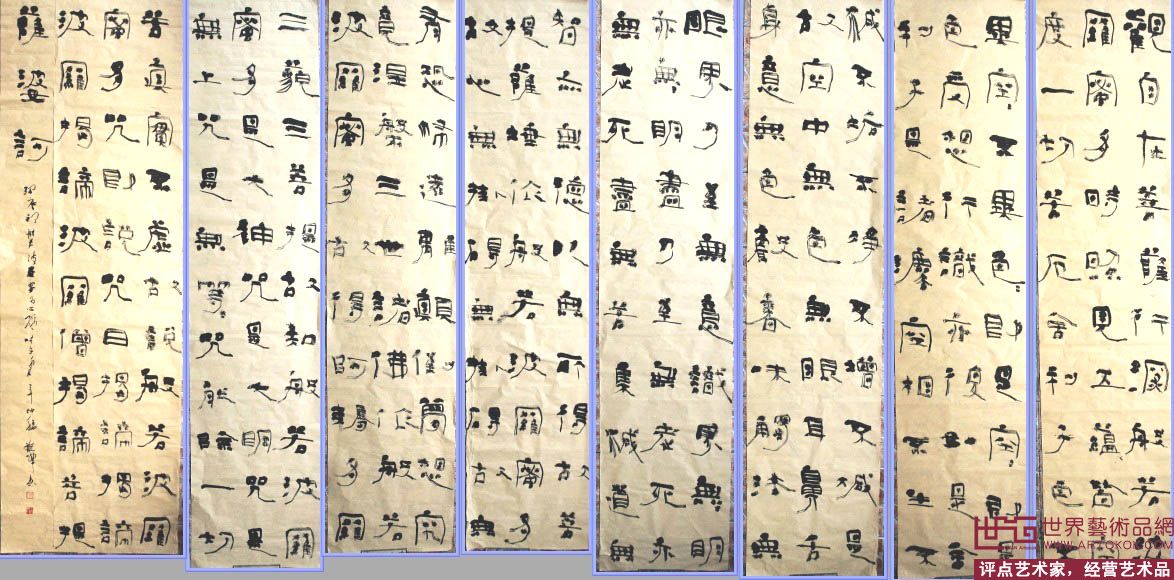 觀自在菩薩行深般若波
羅蜜多時照見五蘊皆空
度一切苦厄舍利子色不
異空〻不異色〻即是空〻即是
色受想行識亦復如是舍
利子是諸法空相不生不
滅不垢不淨不增不減是
故空中無色無眼耳鼻舌
身意無色聲香味觸法無
眼界乃至無意識界無明
亦無明盡乃至無老死亦
無老死盡無苦集滅道無
智亦無德以無所得故菩
提薩埵依般若波羅蜜多
故心無罣礙無罣礙故無
有恐怖遠離顛倒夢想究
竟涅槃三世諸佛依般若
波羅蜜多故得阿耨多羅
三藐三菩提故知般若波羅
蜜多是大神咒是大明咒是
無上咒是無等〻咒能除一切
苦真實不虛故說般若波羅
蜜多咒即說咒曰揭諦揭諦
波羅揭諦波羅僧揭諦菩提
薩婆訶
世界藝術品網
WWW.ARTOKOK.COM
评点艺术家，经营艺术品